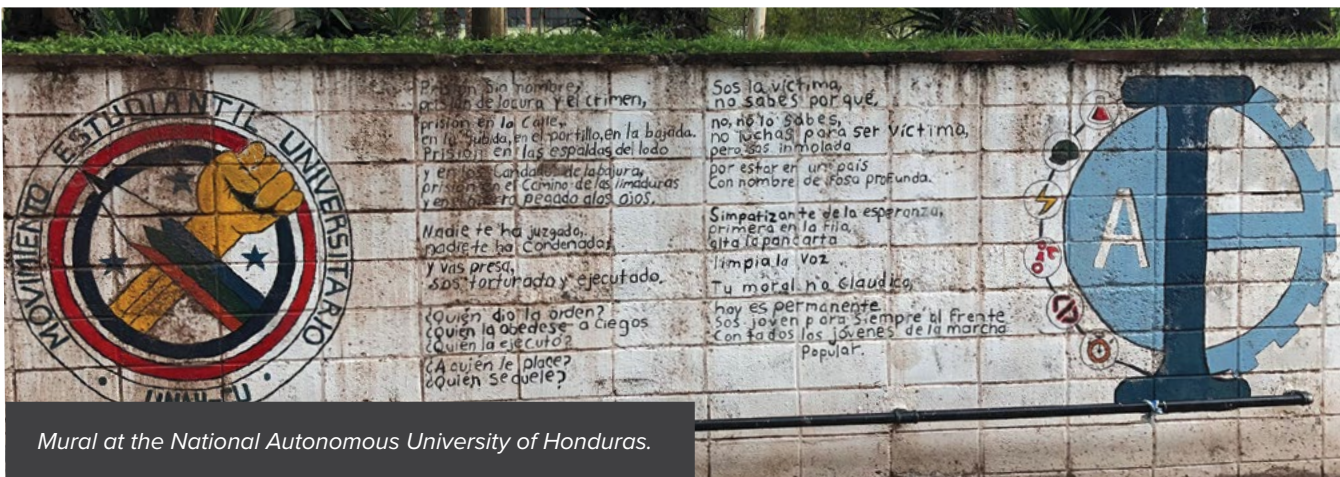 MOVIMIENTO ESTUDIANTIL UNIVERSITARIO
Prisión Sin nombre,
prisión de locura y el crimen,
prisión en la Calle,
en la Subida, en el portillo, en la bajada.
Prisión en las espaldas del lodo
y en los de la bajura,
prisión en el Camino de las limaduras
y en el pegado a los ojos.
Nadie te ha juzgado,
nadie te ha Condenado,
y vas presa,
sos torturado y ejecutado.
¿Quién dio la orden?
¿Quién la obedese a ciegos
¿Quién la ejecutó?
¿A quién le place?
¿Quién se duele?
Sos la víctima,
no sabes por qué,
no, no lo sabes,
no luchas para ser víctima,
pero sos inmolada
por estar en un país
Con nombre de Fosa profunda.
Simpatizante de la esperanza,
primera en la fila,
alta la pancarta
limpia la voz
Tu moral no Claudico,
hoy es permanente
Sos joven para Siempre al frente
Con todos los jóvenes de la marcha
Popular.
A
Mural at the National Autonomous University of Honduras.